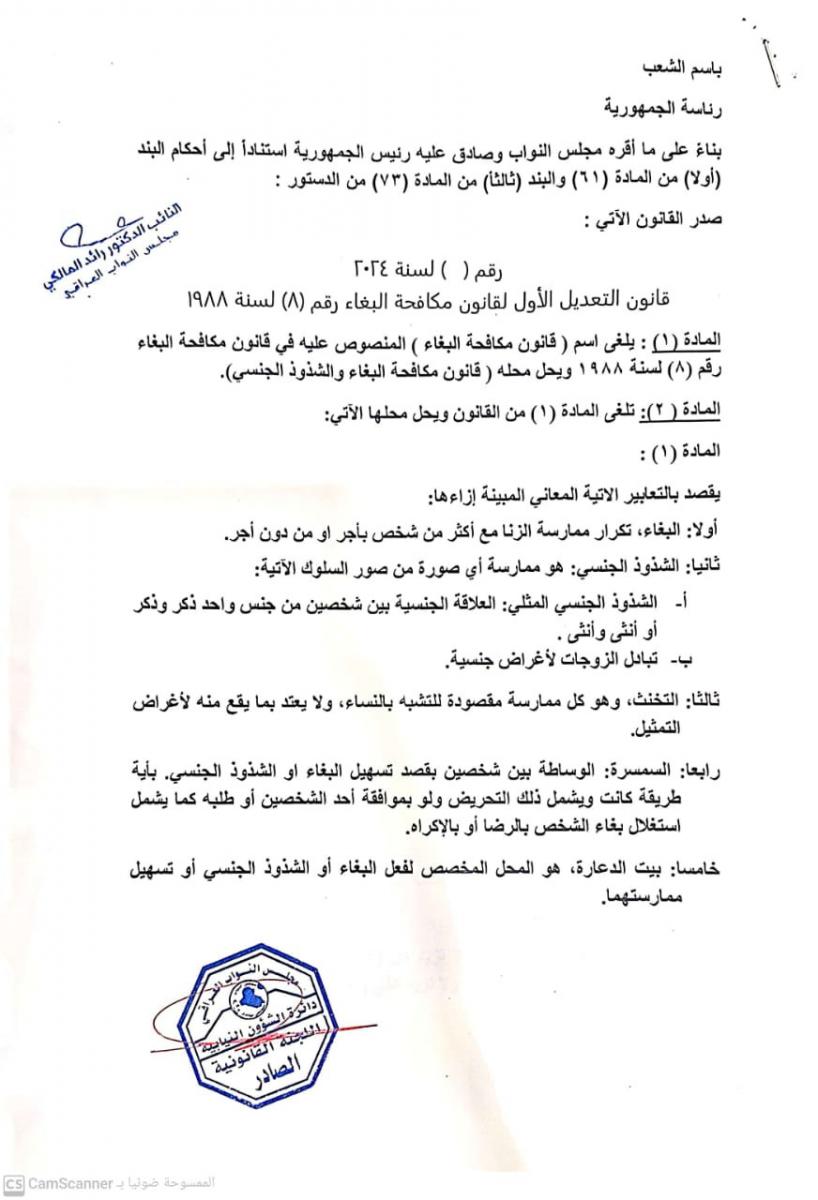 باسم الشعب
رئاسة الجمهورية
بناءً على ما أقره مجلس النواب وصادق عليه رئيس الجمهورية استناداً إلى أحكام البند
(أولا) من المادة (٦١) والبند (ثالثاً) من المادة (٧٣) من الدستور :
صدر القانون الآتي :
النائب الدكتور رائد المالكي
مجلس النواب العراقي
رقم ( ) لسنة ٢٠٢٤
قانون التعديل الأول لقانون مكافحة البغاء رقم (٨) لسنة ١٩٨٨
المادة (١) : يلغى اسم ( قانون مكافحة البغاء ) المنصوص عليه في قانون مكافحة البغاء
رقم (٨) لسنة ١٩٨٨ ويحل محله ( قانون مكافحة البغاء والشذوذ الجنسي).
المادة (٢): تلغى المادة (١) من القانون ويحل محلها الآتي:
المادة (١) :
يقصد بالتعابير الاتية المعاني المبينة إزاءها:
أولا: البغاء، تكرار ممارسة الزنا مع أكثر من شخص بأجر او من دون أجر.
ثانيا: الشذوذ الجنسي: هو ممارسة أي صورة من صور السلوك الآتية:
أ- الشذوذ الجنسي المثلي: العلاقة الجنسية بين شخصين من جنس واحد ذكر وذكر
أو أنثى وأنثى .
ب- تبادل الزوجات لأغراض جنسية.
ثالثا: التخنث، وهو كل ممارسة مقصودة للتشبه بالنساء، ولا يعتد بما يقع منه لأغراض
التمثيل.
رابعا: السمسرة: الوساطة بين شخصين بقصد تسهيل البغاء او الشذوذ الجنسي. بأية
طريقة كانت ويشمل ذلك التحريض ولو بموافقة أحد الشخصين أو طلبه كما يشمل
استغلال بغاء الشخص بالرضا أو بالإكراه.
خامسا: بيت الدعارة، هو المحل المخصص لفعل البغاء أو الشذوذ الجنسي أو تسهيل
ممارستهما.
مجلس النواب العراقي
دائرة الشؤون النيابية
اللجنة القانونية
الصادر
CS CamScanner الممسوحة ضوئيا بـ